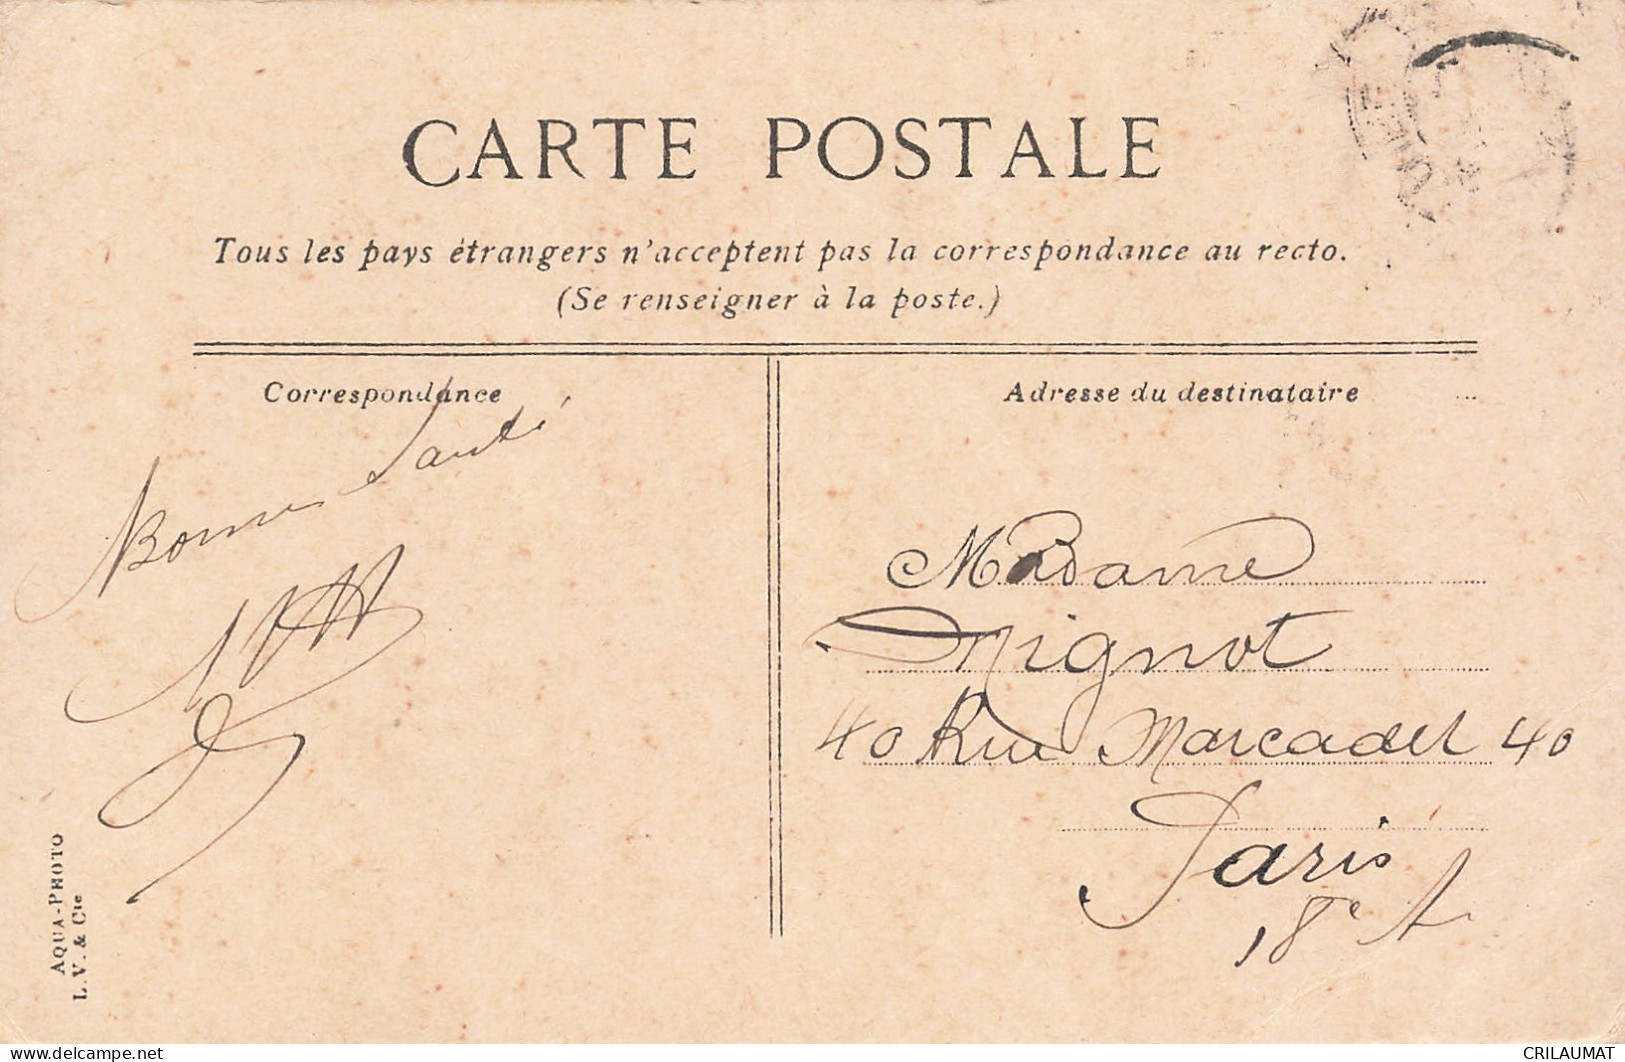 CARTE POSTALE
Tous les pays étrangers n'acceptent pas la correspondance au recto.
(Se renseigner à la poste.)
Correspondance
Bonne Santé
Adresse du destinataire
Madame
Mignot
40 Rue Marcadet 40
Paris
18e A
AQUA-PHOTO
L. V. & Cie
delcampe.net
CRILAUMAT